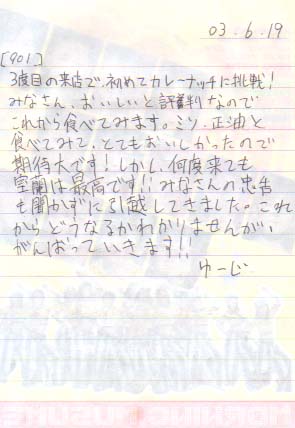 03.6.19
[901]
3度目の来店で、初めてカレーナッチに挑戦!
みなさん、おいしいと評判なので
これから食べてみます。ミソ、正油と
食べてみて、とてもおいしかったので
期待大です!しかし、何度来ても
室蘭は最高です!!みなさんの忠告
も聞かずに引越してきました。これ
からどうなるかわかりませんが、
がんばっていきます!!
ゆーじ